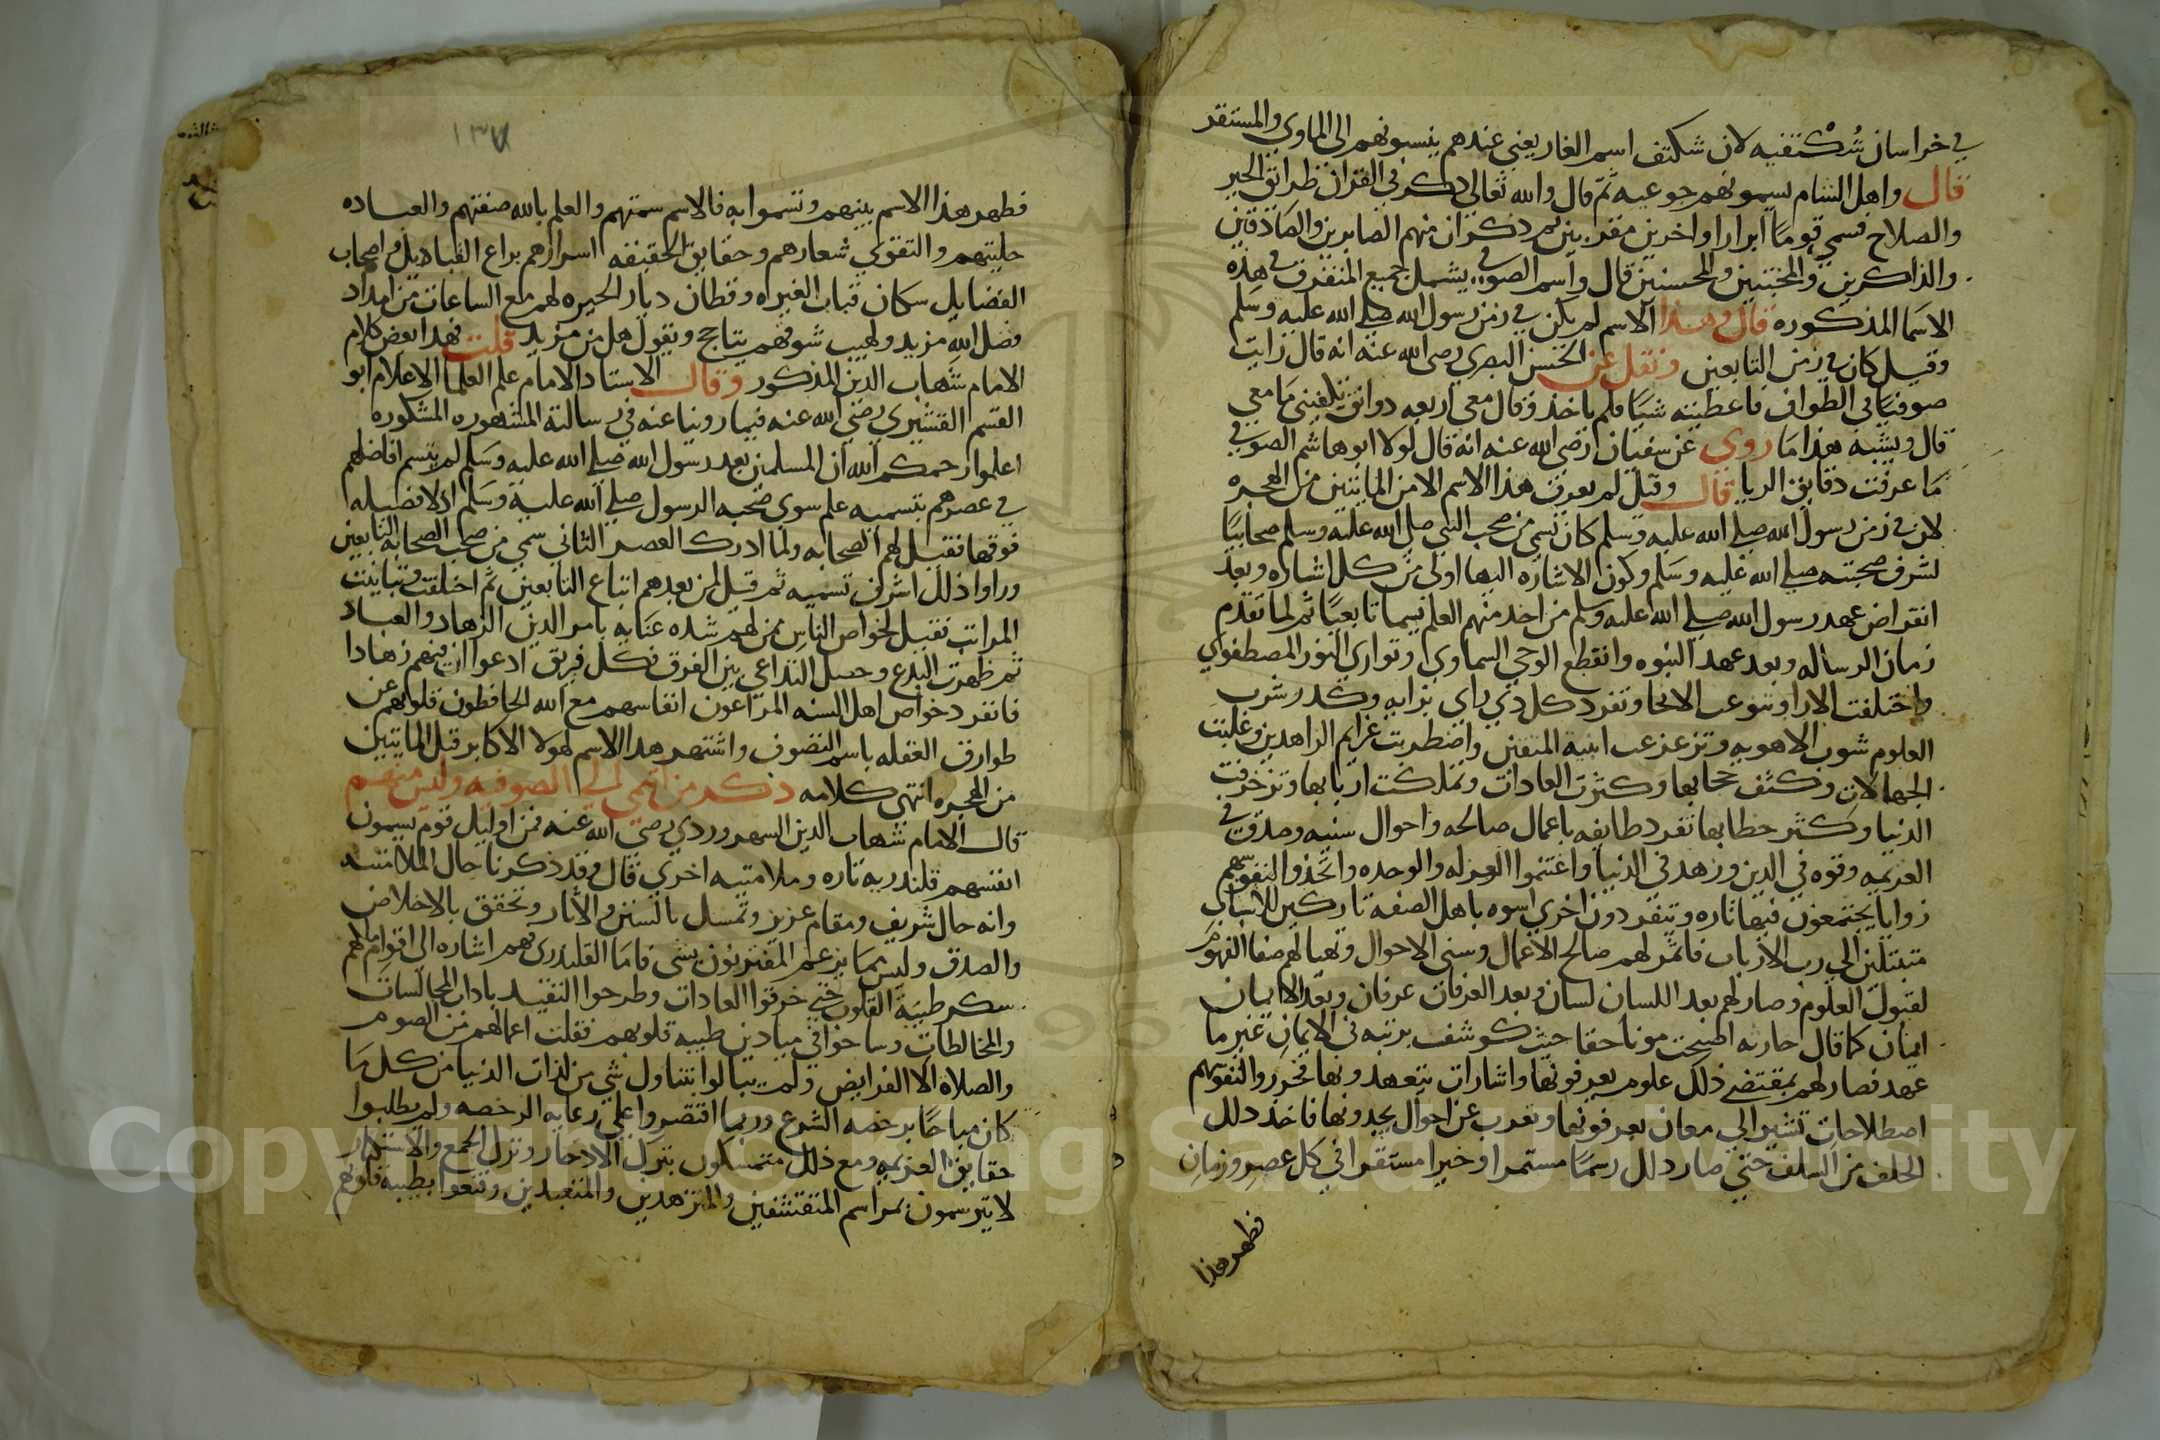 في خراسان شكتفيه لان شكتف اسم الغار يعني عندهم ينسبونهم الى الماوي والمستقر
قال واهل الشام يسمونهم جوعيه ثم قال والله تعالى ذكر في القران طرائق الخير
والصلاح فسمي قوما ابرارا واخرين مقربين ثم ذكر ان منهم الصابرين والصادقين
والذاكرين والمخبتين والمحسنين قال واسم الصوفي يشمل جميع المتفرق في هذه
الاسما المذكوره قال وهذا الاسم لم يكن في زمن رسول الله صلى الله عليه وسلم
وقيل كان في زمن التابعين ونقل عن الحسن البصري رضي الله عنه انه قال رايت
صوفيا في الطواف فاعطيته شيا فلم ياخذ وقال معي اربعه دوانق تكفيني ما معي
قال ويشبه هذا ما روى عن سفيان رضي الله عنه انه قال لولا ابو هاشم الصوفي
ما عرفت دقايق الريا قال وقيل لم يعرف هذا الاسم الا من المايتين من الهجره
لان في زمن رسول الله صلى الله عليه وسلم كان يسمي من صحب النبي صلى الله عليه وسلم صحابيا
لشرف صحبته صلى الله عليه وسلم وكون الاشاره اليها اولى من كل اشاره وبعد
انقراض عهد رسول الله صلى الله عليه وسلم من اخذ منهم العلم يسما تابعيا ثم لما تقدم
زمان الرساله وبعد عهد النبوه وانقطع الوحي السماوي وتوارى النور المصطفوي
واختلفت الارا وتنوعت الانحا وتفرد كل ذي راي برايه وكدر شرب
العلوم شوب الاهويه وتزعزعت ابنية المتقين واضطربت عزايم الزاهدين وغلبت
الجهالات وكثف حجابها وكثرت العادات وتملكت اربابها وتزخرفت
الدنيا وكثر خطابها تفرد طايفه باعمال صالحه واحوال سنيه وصدق في
العزيمه وقوه في الدين وزهد في الدنيا واغتنموا العزله والوحده واتخذوا لنفوسهم
زوايا يجتمعون فيها تاره وينفردون اخري اسوه باهل الصفه تاركين للاسباب
متبتلين الى رب الارباب فاثمر لهم صالح الاعمال وسني الاحوال وتهيا لهم صفا الفهوم
لقبول العلوم وصار لهم بعد اللسان لسان وبعد العرفان عرفان وبعد الايمان
ايمان كما قال حارثه اصبحت مومنا حقا حيث كوشف برتبه في الايمان غير ما
عهد فصار لهم بمقتضى ذلك علوم يعرفونها واشارات يتعهدونها فحرروا لنفوسهم
اصطلاحات تشير الى معان يعرفونها وتعرب عن احوال يجدونها فاخذ ذلك
الخلف من السلف حتى صار ذلك رسما مستمرا وخبرا مستقرا في كل عصر وزمان
فظهر هذا
١٣٧
فظهر هذا الاسم بينهم وتسموا به فالاسم سمتهم والعلم بالله صفتهم والعباده
حليتهم والتقوي شعارهم وحقايق الحقيقه اسرارهم براع القبايل واصحاب
الفضايل سكان قباب الغيره وقطان ديار الحيره لهم مع الساعات من امداد
فضل الله مزيد ولهيب شوقهم يتاجج ويقول هل من مزيد قلت فهذا بعض كلام
الامام شهاب الدين المذكور وقال الاستاد الامام علم العلما الاعلام ابو
القسم القشيري رضي الله عنه فيما روينا عنه في رسالته المشهوره المشكوره
اعلموا رحمكم الله ان المسلمين بعد رسول الله صلى الله عليه وسلم لم يتسم افاضلهم
في عصرهم بتسميه علم سوى صحبه الرسول صلى الله عليه وسلم اذ لا فضيله
فوقها فقيل لهم الصحابه ولما ادرك العصر الثاني سمي من صحب الصحابه التابعين
وراوا ذلك اشرف تسميه ثم قيل لمن بعدهم اتباع التابعين ثم اختلفت وتباينت
المراتب فقيل لخواص الناس ممن لهم شده عنايه بامر الدين الزهاد والعباد
ثم ظهرت البدع وحصل التداعي بين الفرق فكل فريق ادعوا ان فيهم زهادا
فانفرد خواص اهل السنه المراعون انفاسهم مع الله الحافظون قلوبهم عن
طوارق الغفله باسم التصوف واشتهر هذا الاسم لهولا الاكابر قبل المايتين
من الهجره انتهى كلامه ذكر من انتمي الى الصوفيه وليس منهم
قال الامام شهاب الدين السهروردي رضي الله عنه فمن اوليك قوم يسمون
انفسهم قلندريه تاره وملامتيه اخري قال وقد ذكرنا حال الملامتيه
وانه حال شريف ومقام عزيز وتمسك بالسنن والاثار وتحقق بالاخلاص
والصدق وليس مما يزعم المفترنون بشي فاما القلندريه فهم اشاره الى اقوام ملكهم
سكر طيبة القلوب حتي خرقوا العادات وطرحوا التقيد باداب المجالسات
والمخالطات وساحوا في ميادين طيبه قلوبهم فقلت اعمالهم من الصوم
والصلاه الا الفرايض ولم يبالوا بتناول شي من لذات الدنيا من كل ما
كان مباحا برخصه الشرع وربما اقتصروا على رعايه الرخصه ولم يطلبوا
حقايق العزيمه ومع ذلك متمسكون بترك الادخار وترك الجمع والاستكثار
لا يترسمون بمراسم المتقشفين والمتزهدين والمتعبدين وقنعوا بطيبه قلوبهم
Copyright © King Saud University